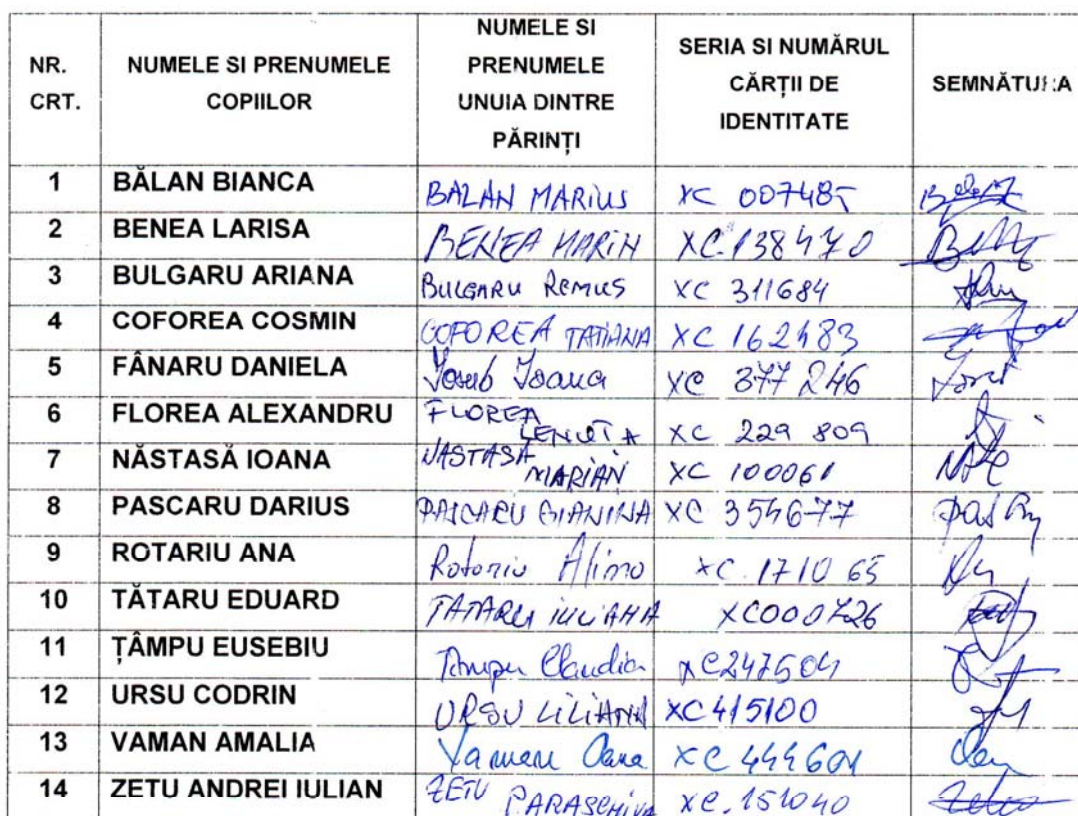 NR. CRT. NUMELE SI PRENUMELE COPIILOR NUMELE SI PRENUMELE UNUIA DINTRE PĂRINȚI SERIA SI NUMĂRUL CĂRȚII DE IDENTITATE SEMNĂTURA
1 BĂLAN BIANCA BALAN MARIUS XC 007485
2 BENEA LARISA BENEA MARIN XC.138470
3 BULGARU ARIANA BULGARU REMUS XC 311684
4 COFOREA COSMIN COFOREA TATIANA XC 162483
5 FÂNARU DANIELA Iosub Ioana XC 377246
6 FLOREA ALEXANDRU FLOREA LENUȚA XC 229 809
7 NĂSTASĂ IOANA NASTASĂ MARIAN XC 100061
8 PASCARU DARIUS PASCARU GIANINA XC 354677
9 ROTARIU ANA Rotariu Alina XC 171065
10 TĂTARU EDUARD TATARU IULIANA XC000726
11 ȚÂMPU EUSEBIU Țâmpu Claudia XC247504
12 URSU CODRIN URSU LILIANA XC415100
13 VAMAN AMALIA Vaman Oana XC444601
14 ZETU ANDREI IULIAN ZETU PARASCHIVA XC.151040